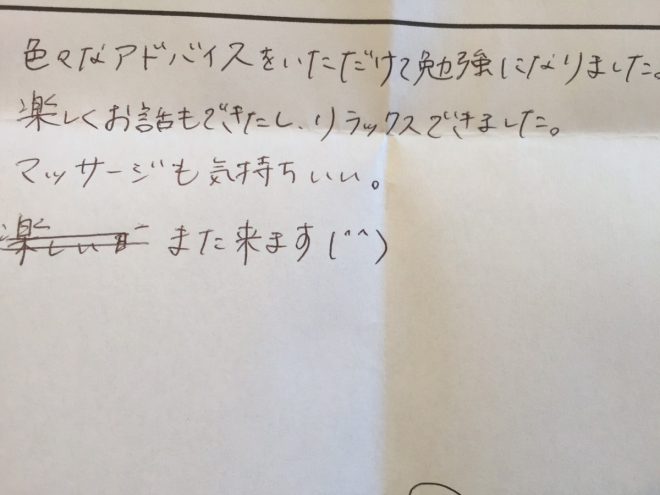 色々なアドバイスをいただけて勉強になりました。
楽しくお話もできたし、リラックスできました。
マッサージも気持ちいい。
また来ます(^^)